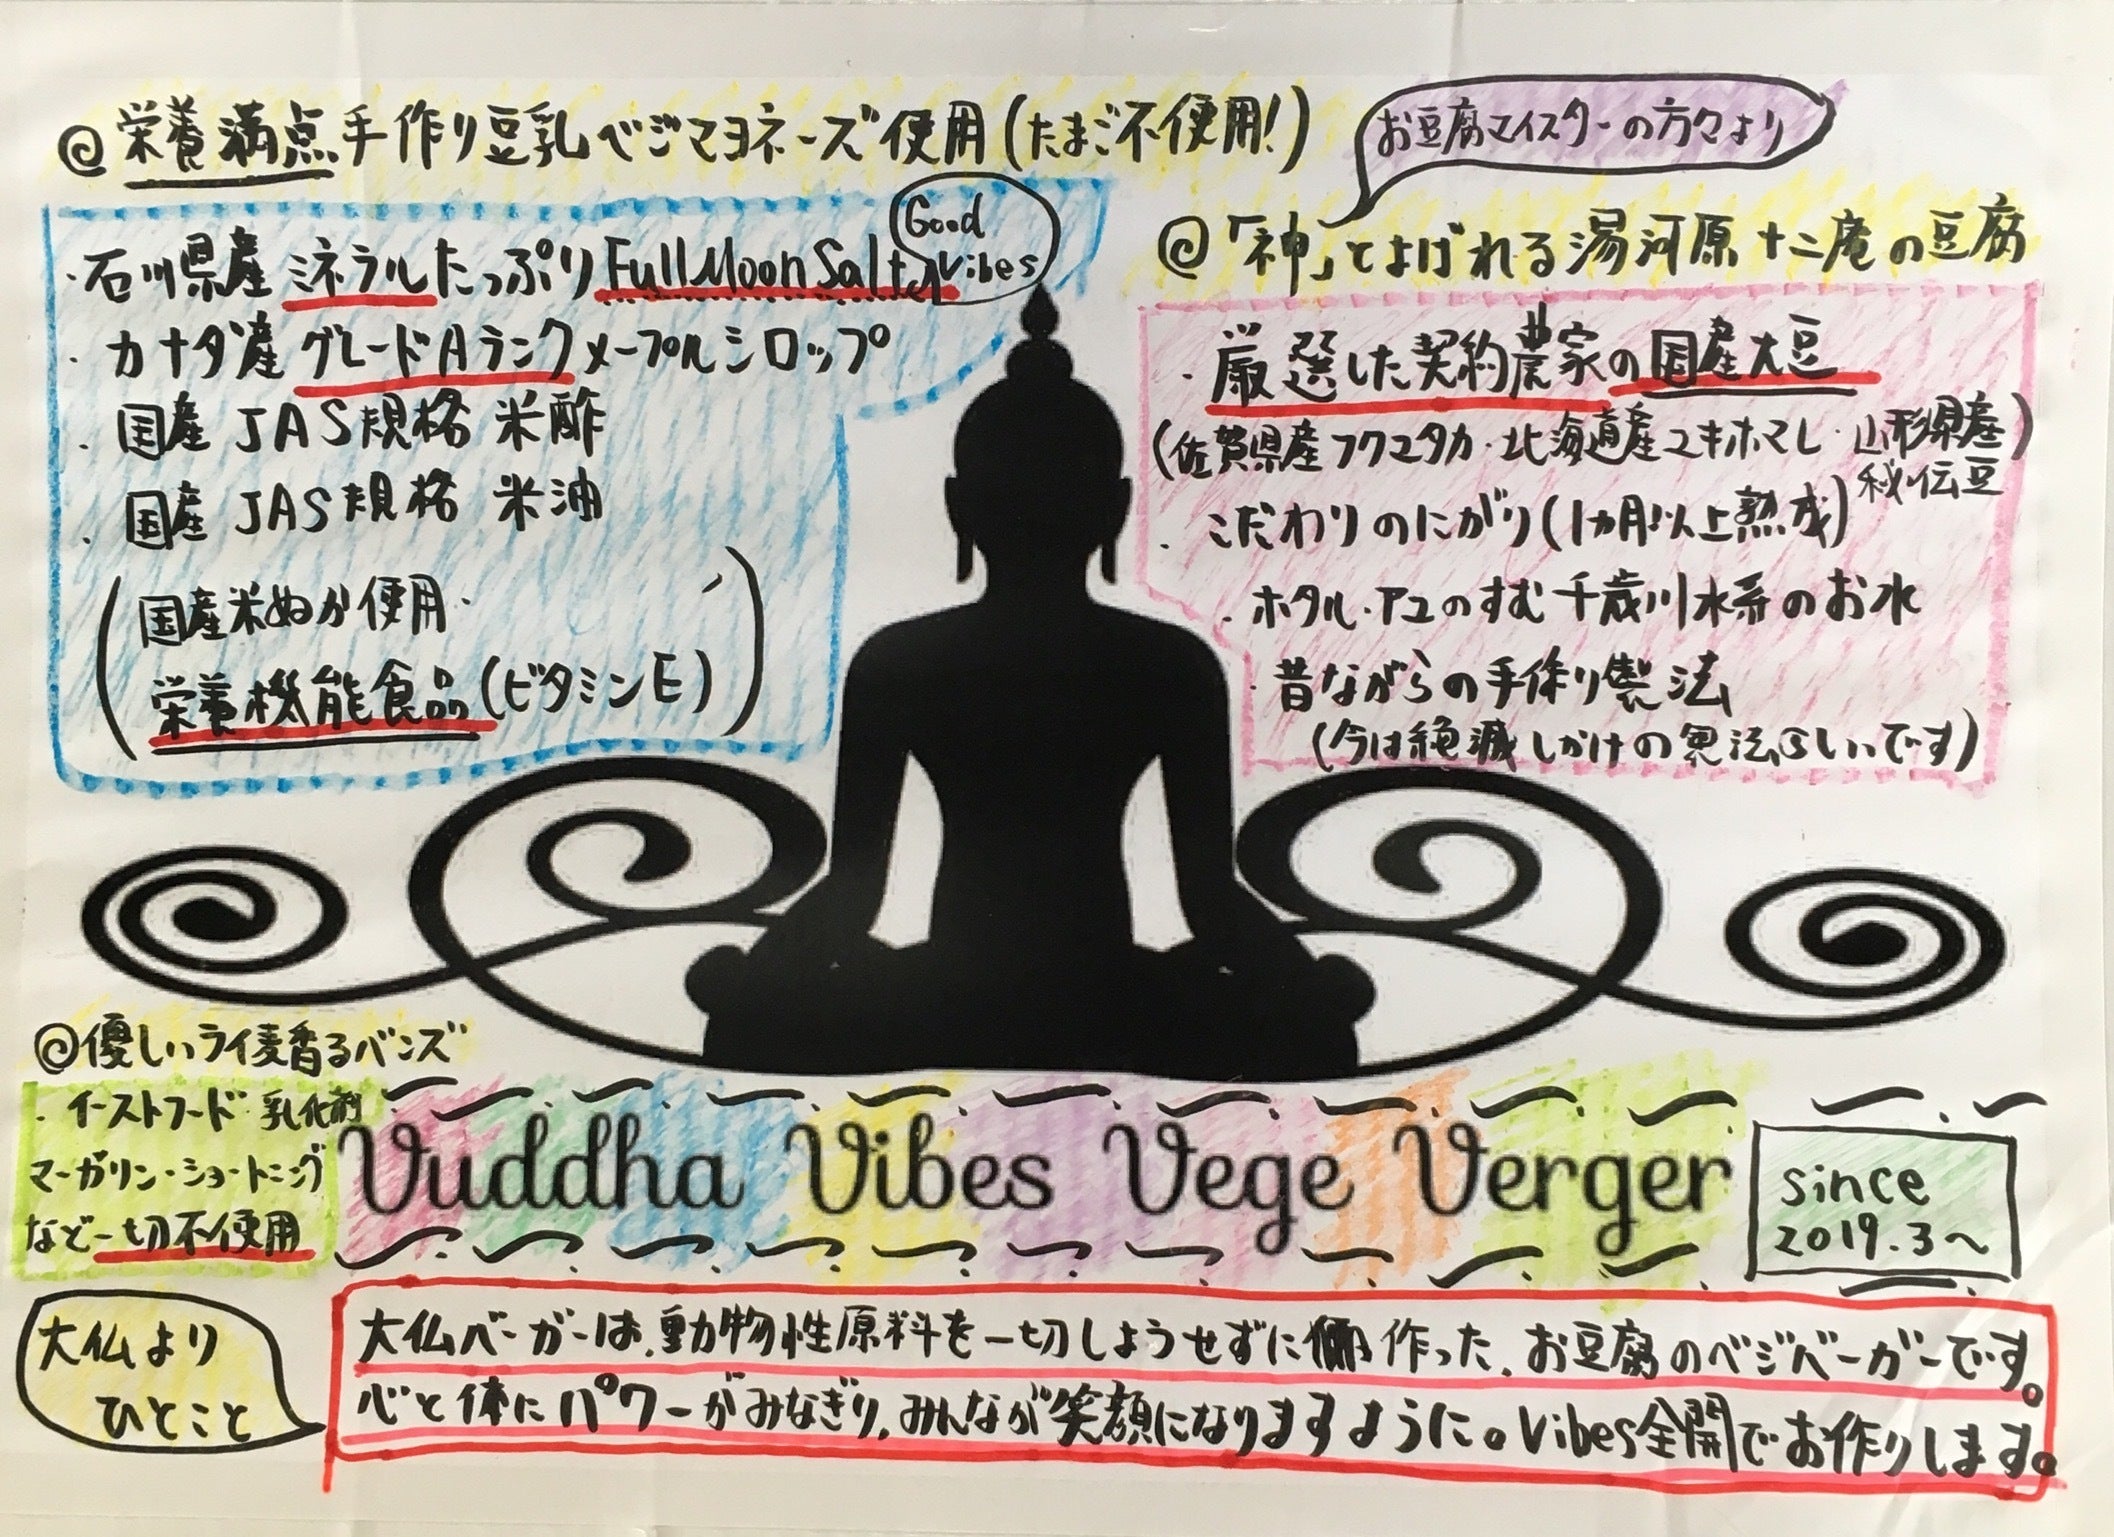 @栄養満点手作り豆乳ベジマヨネーズ使用(たまご不使用!)
・石川県産ミネラルたっぷりFullMoonSalt
Good
Vibes
・カナダ産グレードAランクメープルシロップ
・国産JAS規格 米酢
・国産JAS規格 米油
(国産米ぬか使用・
栄養機能食品(ビタミンE))
お豆腐マイスターの方々より
@「神」とよばれる湯河原十二庵の豆腐
・厳選した契約農家の国産大豆
(佐賀県産フクユタカ・北海道産ユキホマレ・山形県産
秘伝豆)
・こだわりのにがり(1ヵ月以上熟成)
・ホタル・アユのすむ千歳川水系のお水
・昔ながらの手作り製法
(今は絶滅しかけの製法らしいです)
@優しいライ麦香るバンズ
・イーストフード・乳化剤
マーガリン・ショートニング
など一切不使用
Vuddha Vibes Vege Verger
since
2019.3〜
大仏より
ひとこと
大仏バーガーは、動物性原料を一切しようせずに作った、お豆腐のベジバーガーです。
心と体にパワーがみなぎり、みんなが笑顔になりますように。Vibes全開でお作りします。